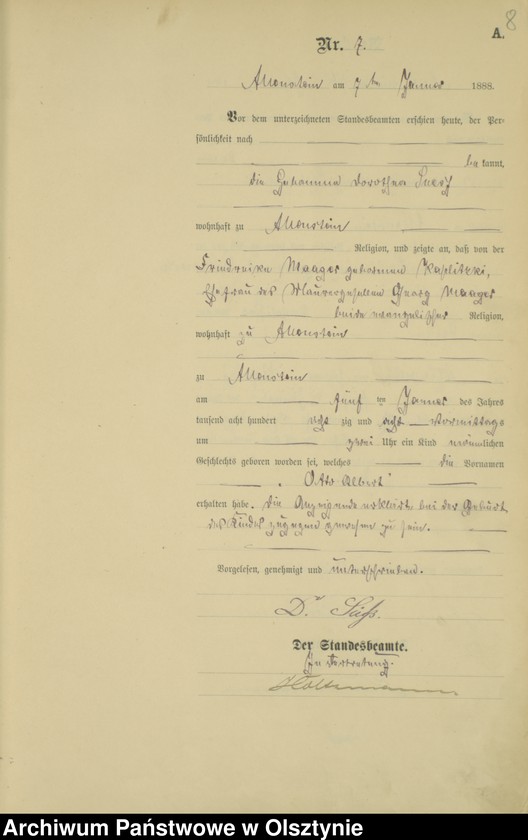 8
A.
Nr. 7.
Allenstein am 7 ten Januar 1888.
Vor dem unterzeichneten Standesbeamten erschien heute, der Per-
sönlichkeit nach
bekannt,
die Hebamme Dorothea
wohnhaft zu Allenstein
Religion, und zeigte an, daß von der
Friederike Maager geborenen Kaslitzki,
Ehefrau des Maurergesellen Georg Maager
beide evangelischer Religion,
wohnhaft zu Allenstein
zu Allenstein
am fünf ten Januar des Jahres
tausend acht hundert acht zig und acht Vormittags
um zwei Uhr ein Kind männlichen
Geschlechts geboren worden sei, welches die Vornamen
Otto Albert
erhalten habe. Die Anzeigende erklärt bei der Geburt
des Kindes zugegen gewesen zu sein.
Vorgelesen, genehmigt und unterschrieben.
D. Süß.
Der Standesbeamte.
In Vertretung.
Archiwum Państwowe w Olsztynie